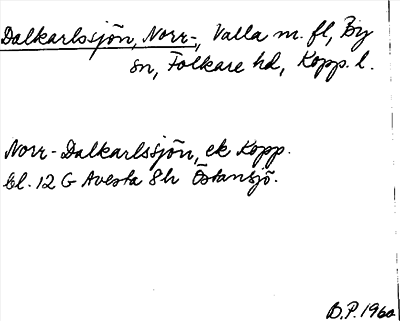 Dalkarlssjön, Norr-, Valla m. fl, By
sn, Folkare hd, Kopp. l.
Norr-Dalkarlssjön, ek Kopp.
bl. 12 G Avesta 8h Östansjö.
B.P. 1960